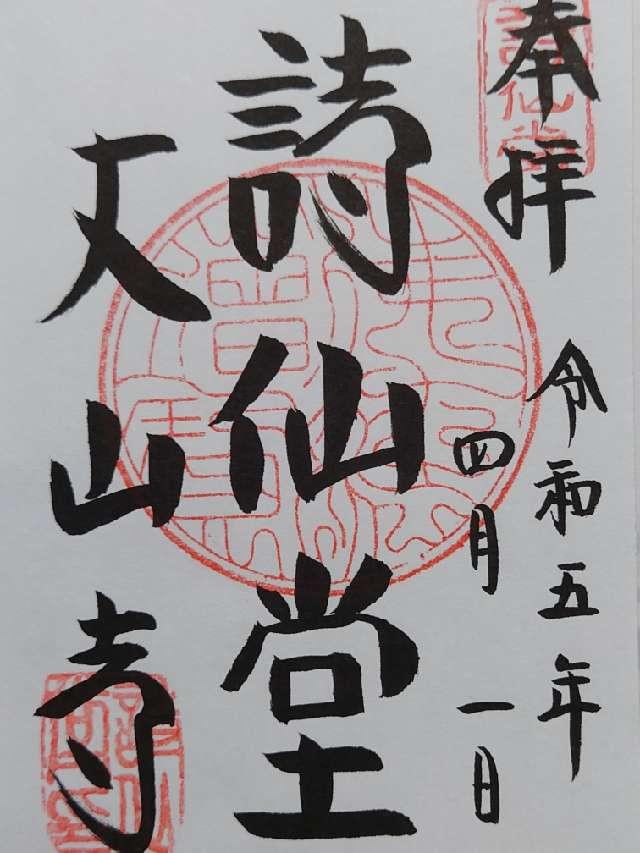 奉拝
令和五年
四月一日
詩仙堂
丈山寺
詩仙堂